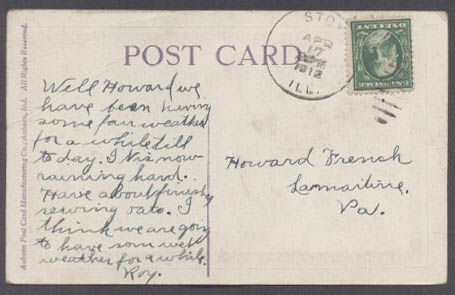 POST CARD
Auburn Post Card Manufacturing Co., Auburn, Ind. All Rights Reserved.
APR
17
1912
ILL.
Well Howard we
have been having
some fair weather
for a while till
to day. It is now
raining hard.
Have about finishd
sewing oats. I
think we are going
to have som wet
weather for a while.
Roy.
Howard French
Lamartine,
Pa.